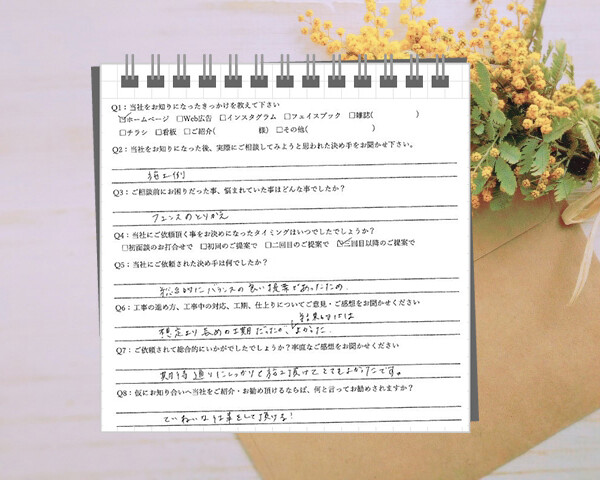 Q1：当社をお知りになったきっかけを教えて下さい
☑ホームページ □Web広告 □インスタグラム □フェイスブック □雑誌( )
□チラシ □看板 □ご紹介( 様) □その他( )
Q2：当社をお知りになった後、実際にご相談してみようと思われた決め手をお聞かせ下さい。
施工例
Q3：ご相談前にお困りだった事、悩まれていた事はどんな事でしたか？
フェンスのとりかえ
Q4：当社にご依頼頂く事をお決めになったタイミングはいつでしたでしょうか？
□初面談のお打合せで □初回のご提案で □二回目のご提案で ☑三回目以降のご提案で
Q5：当社にご依頼された決め手は何でしたか？
総合的にバランスの良い提案であったため
Q6：工事の進め方、工事中の対応、工期、仕上りについてご意見・ご感想をお聞かせください
結果的には
想定より長めの工期だったが、よかった。
Q7：ご依頼されて総合的にいかがでしたでしょうか？率直なご感想をお聞かせください
期待通りにしっかりと施工頂けてとてもよかったです。
Q8：仮にお知り合いへ当社をご紹介・お勧め頂けるならば、何と言ってお勧めされますか？
ていねいな仕事をして頂ける！